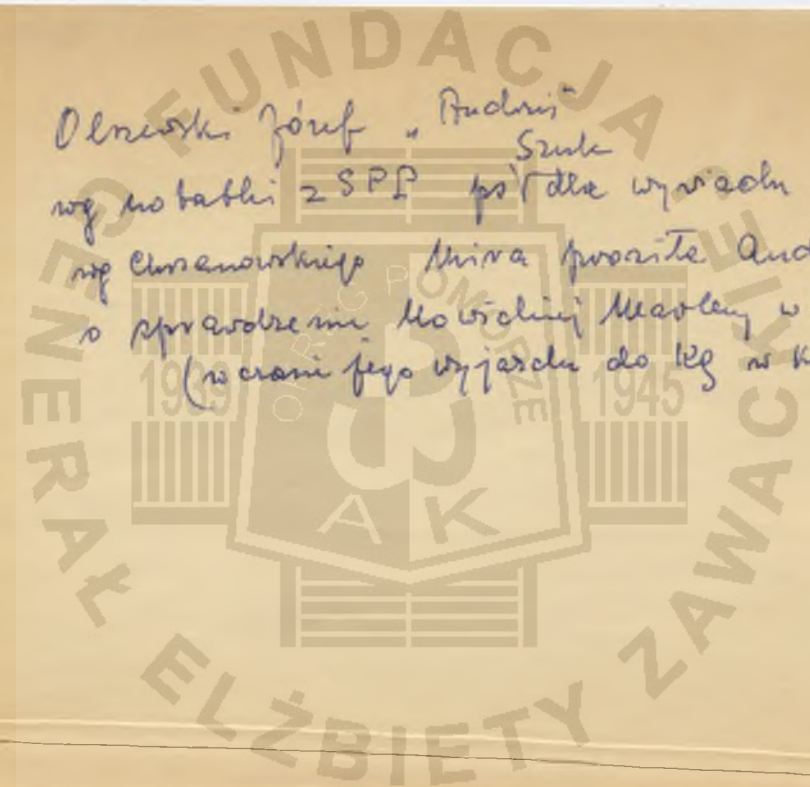 Olszewski Józef „Andrzej”
Szuk
wg notatki z SPP ps. dla wywiadu
wg Chrzanowskiego Mira prosiła And
o sprawdzenie Nowickiej Marleny w
(w czasie jego wyjazdu do KG w K
FUNDACJA GENERAŁ ELŻBIETY ZAWACKIEJ
OKRĘG POMORZE
1939 1945
AK